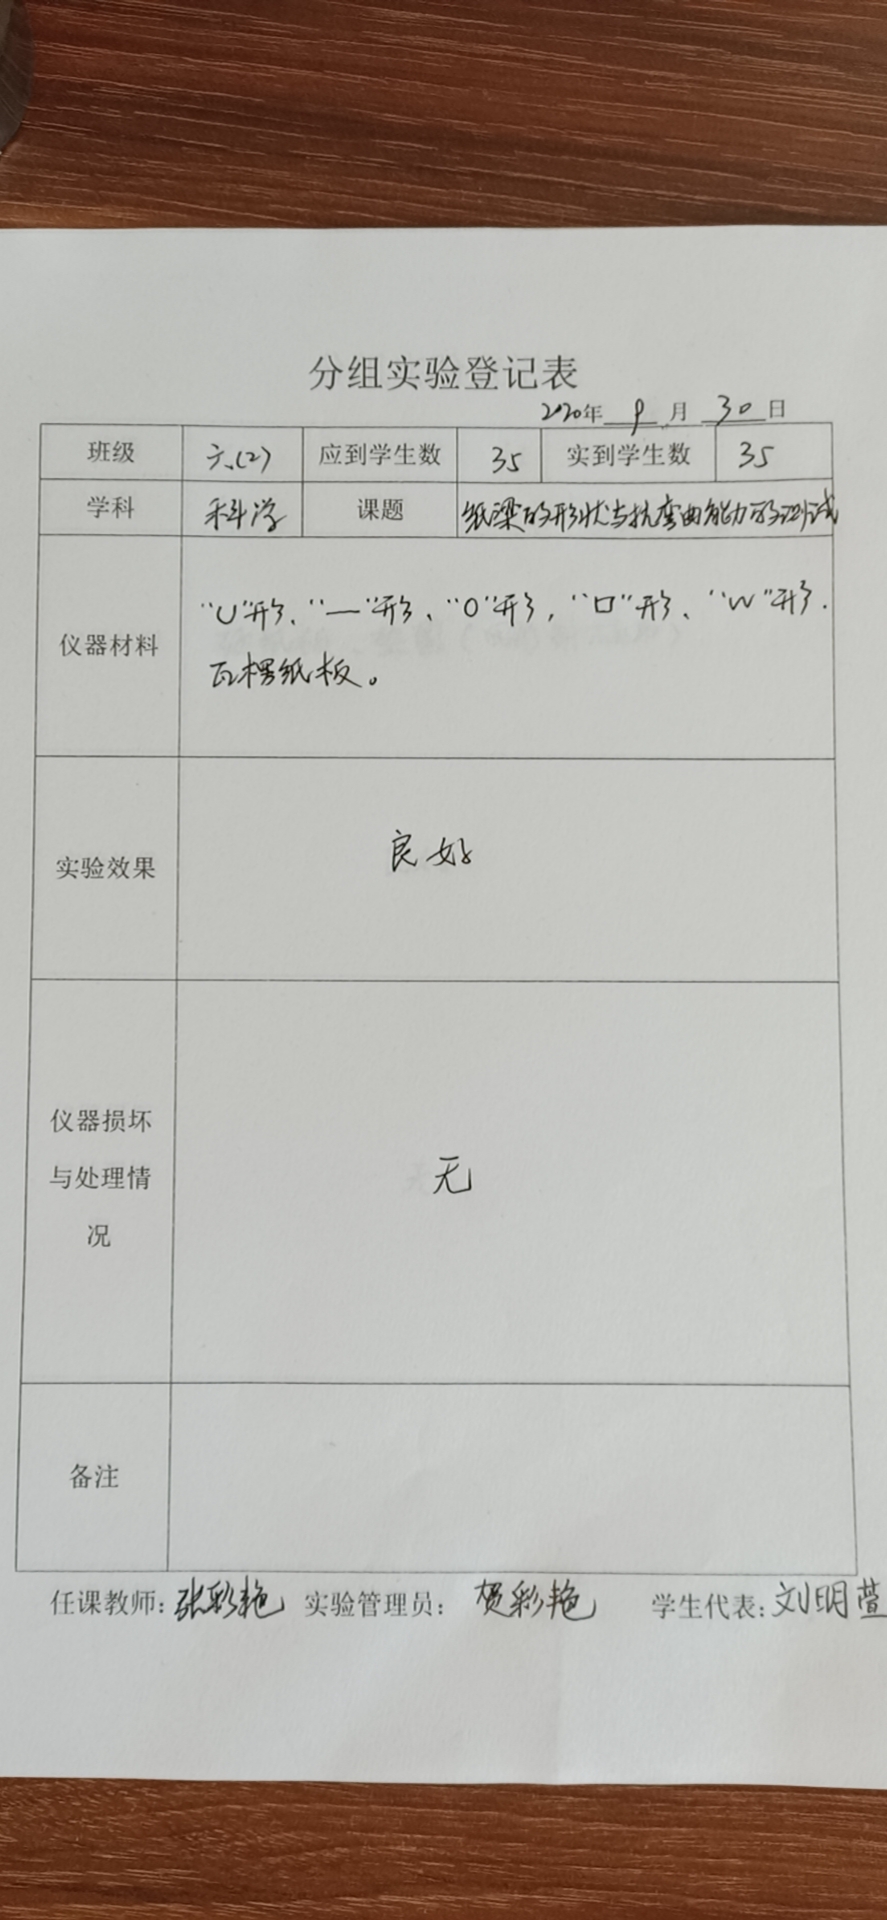 分组实验登记表
2020年 9 月 30 日
班级 六.(2) 应到学生数 35 实到学生数 35
学科 科学 课题 纸梁的形状与抗弯曲能力的测试
仪器材料
“U”形、“一”形、“O”形，“口”形、“W”形.
瓦楞纸板。
实验效果 良好
仪器损坏
与处理情
况
无
备注
任课教师: 张彩艳 实验管理员: 贺彩艳 学生代表: 刘明萱